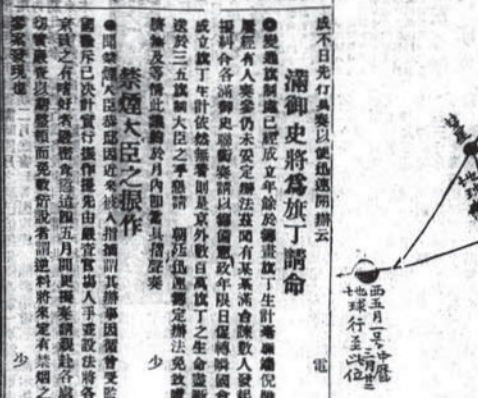 成不日先行具奏以便迅速開辦云
電
滿御史將爲旗丁請命
●變通旗制處已經成立年餘於籌畫旗丁生計毫無端倪
屢經有人奏參仍未妥定辦法茲聞有某某滿會諫數人發起
擬糾合各滿御史聯銜奏請以籌備憲政年限日促轉瞬國會
成立旗丁生計依然無着則是京外數百萬旗丁之生命盡斷
送於三五旗制大臣之手懇請 朝廷迅速籌定辦法免致
等情此議於月內即當具摺聲奏
少
禁煙大臣之振作
●聞禁煙大臣恭邸因近來被人指摘謂其辦事因循曾受監
國申斥已決計實行振作擬先由嚴查官場入手並設法將各
京員之有嗜好者嚴密查
四五月間更擬奏請親赴各處
切實嚴查以期整頓而免敷衍說者謂逆料將來定有禁煙之
案發現也
少
彗星
地球
西五月一号中曆三月廿二
地球行至此位